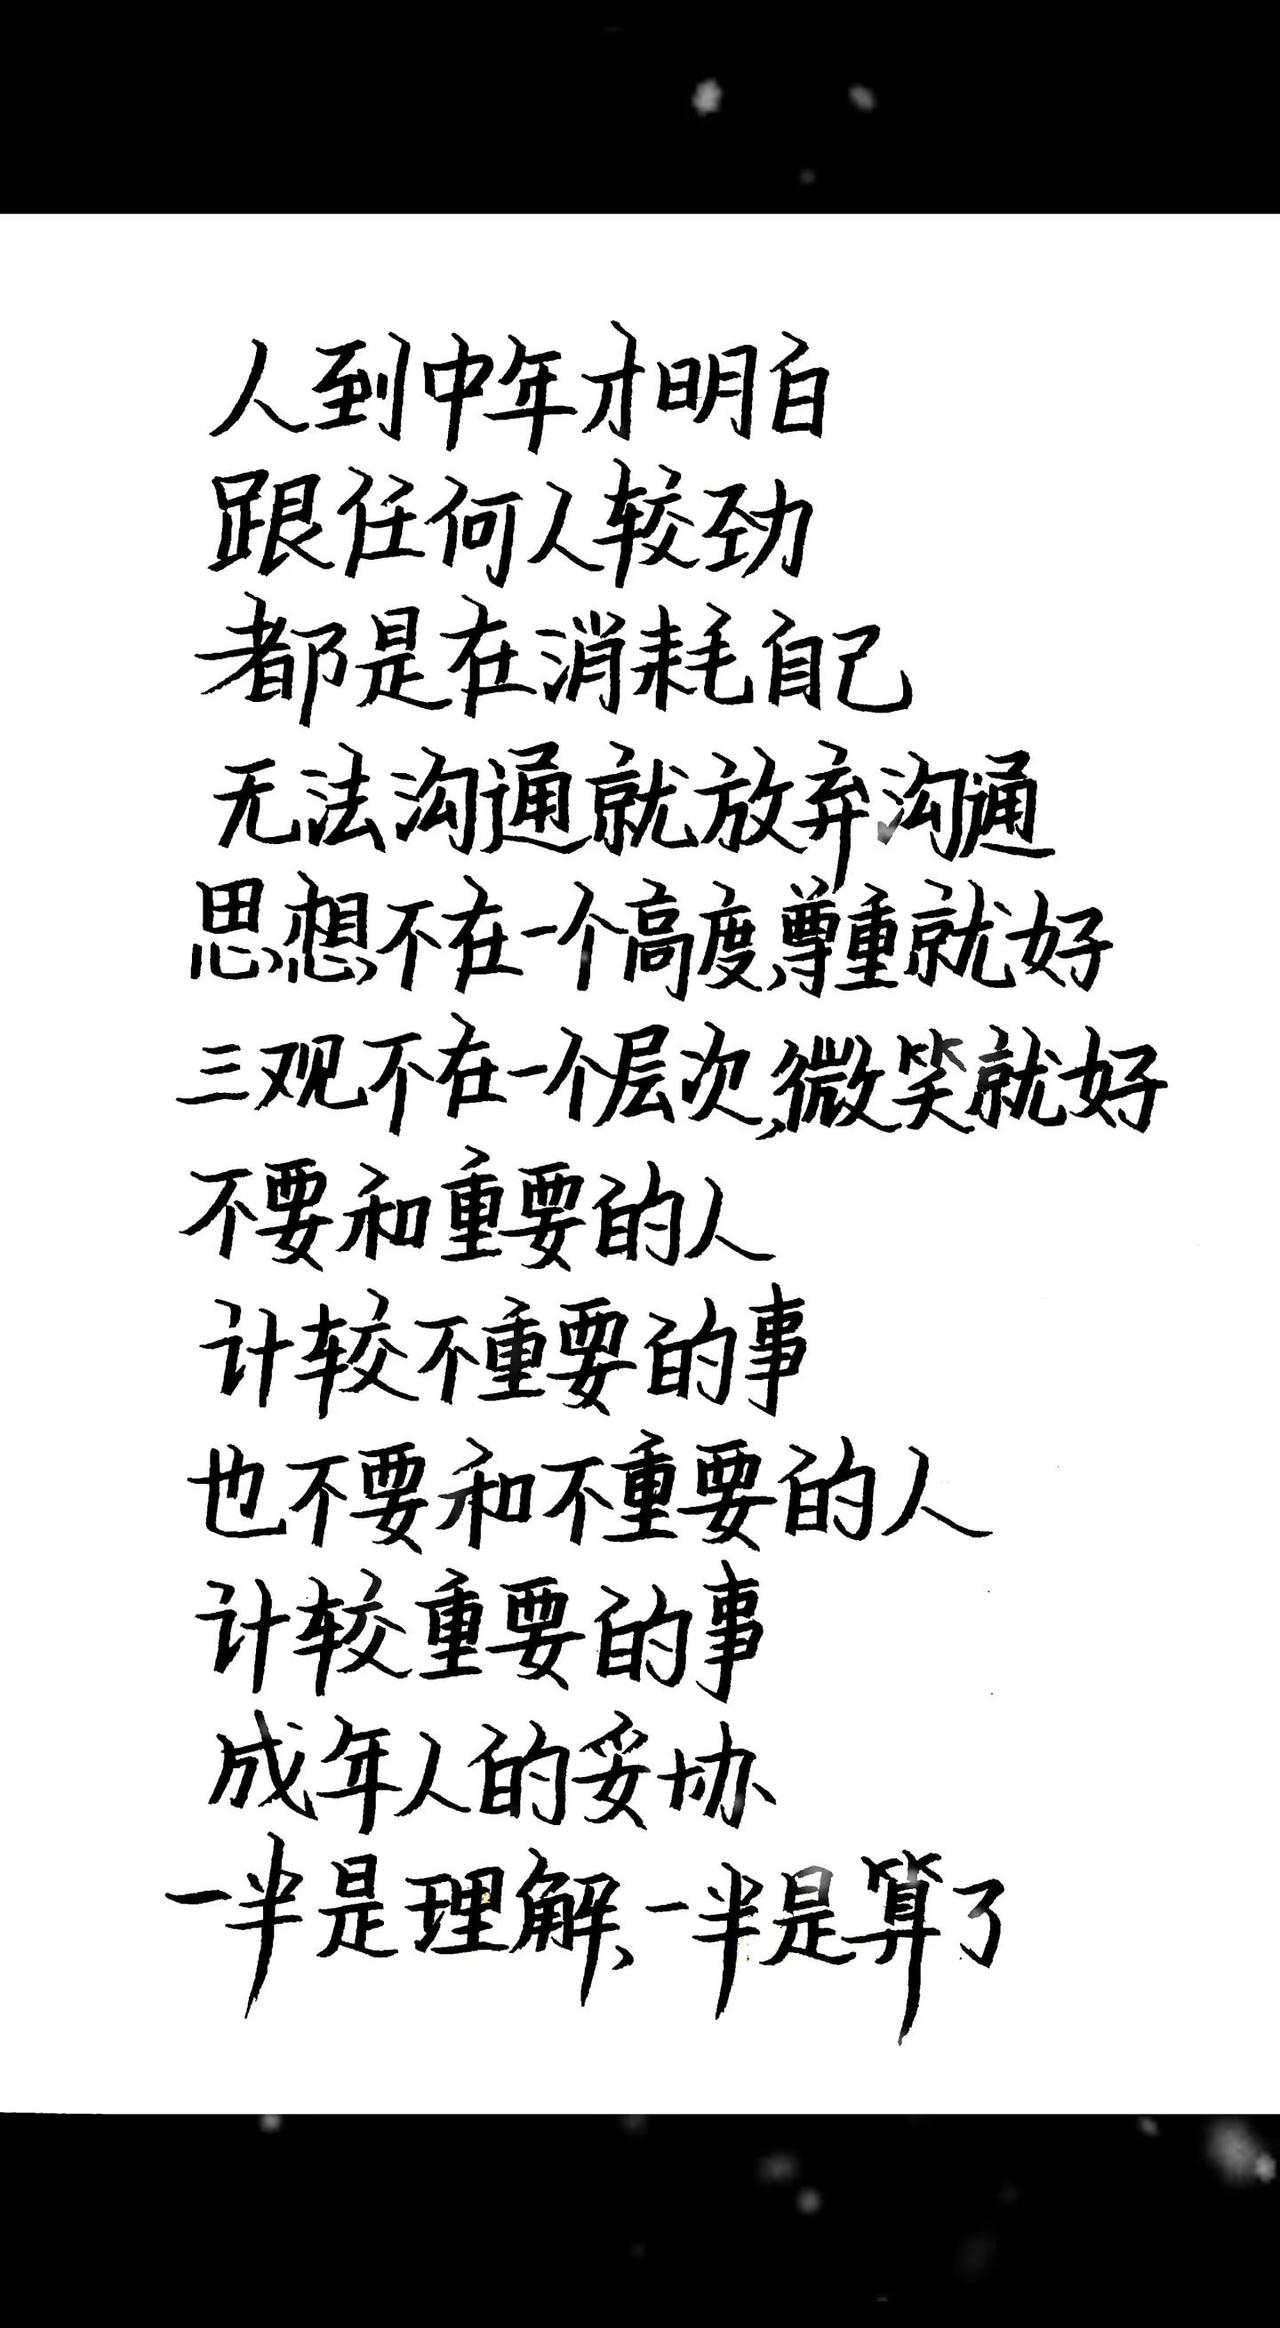 人到中年才明白
跟任何人较劲
都是在消耗自己
无法沟通就放弃沟通
思想不在一个高度,尊重就好
三观不在一个层次,微笑就好
不要和重要的人
计较不重要的事
也不要和不重要的人
计较重要的事
成年人的妥协
一半是理解、一半是算了